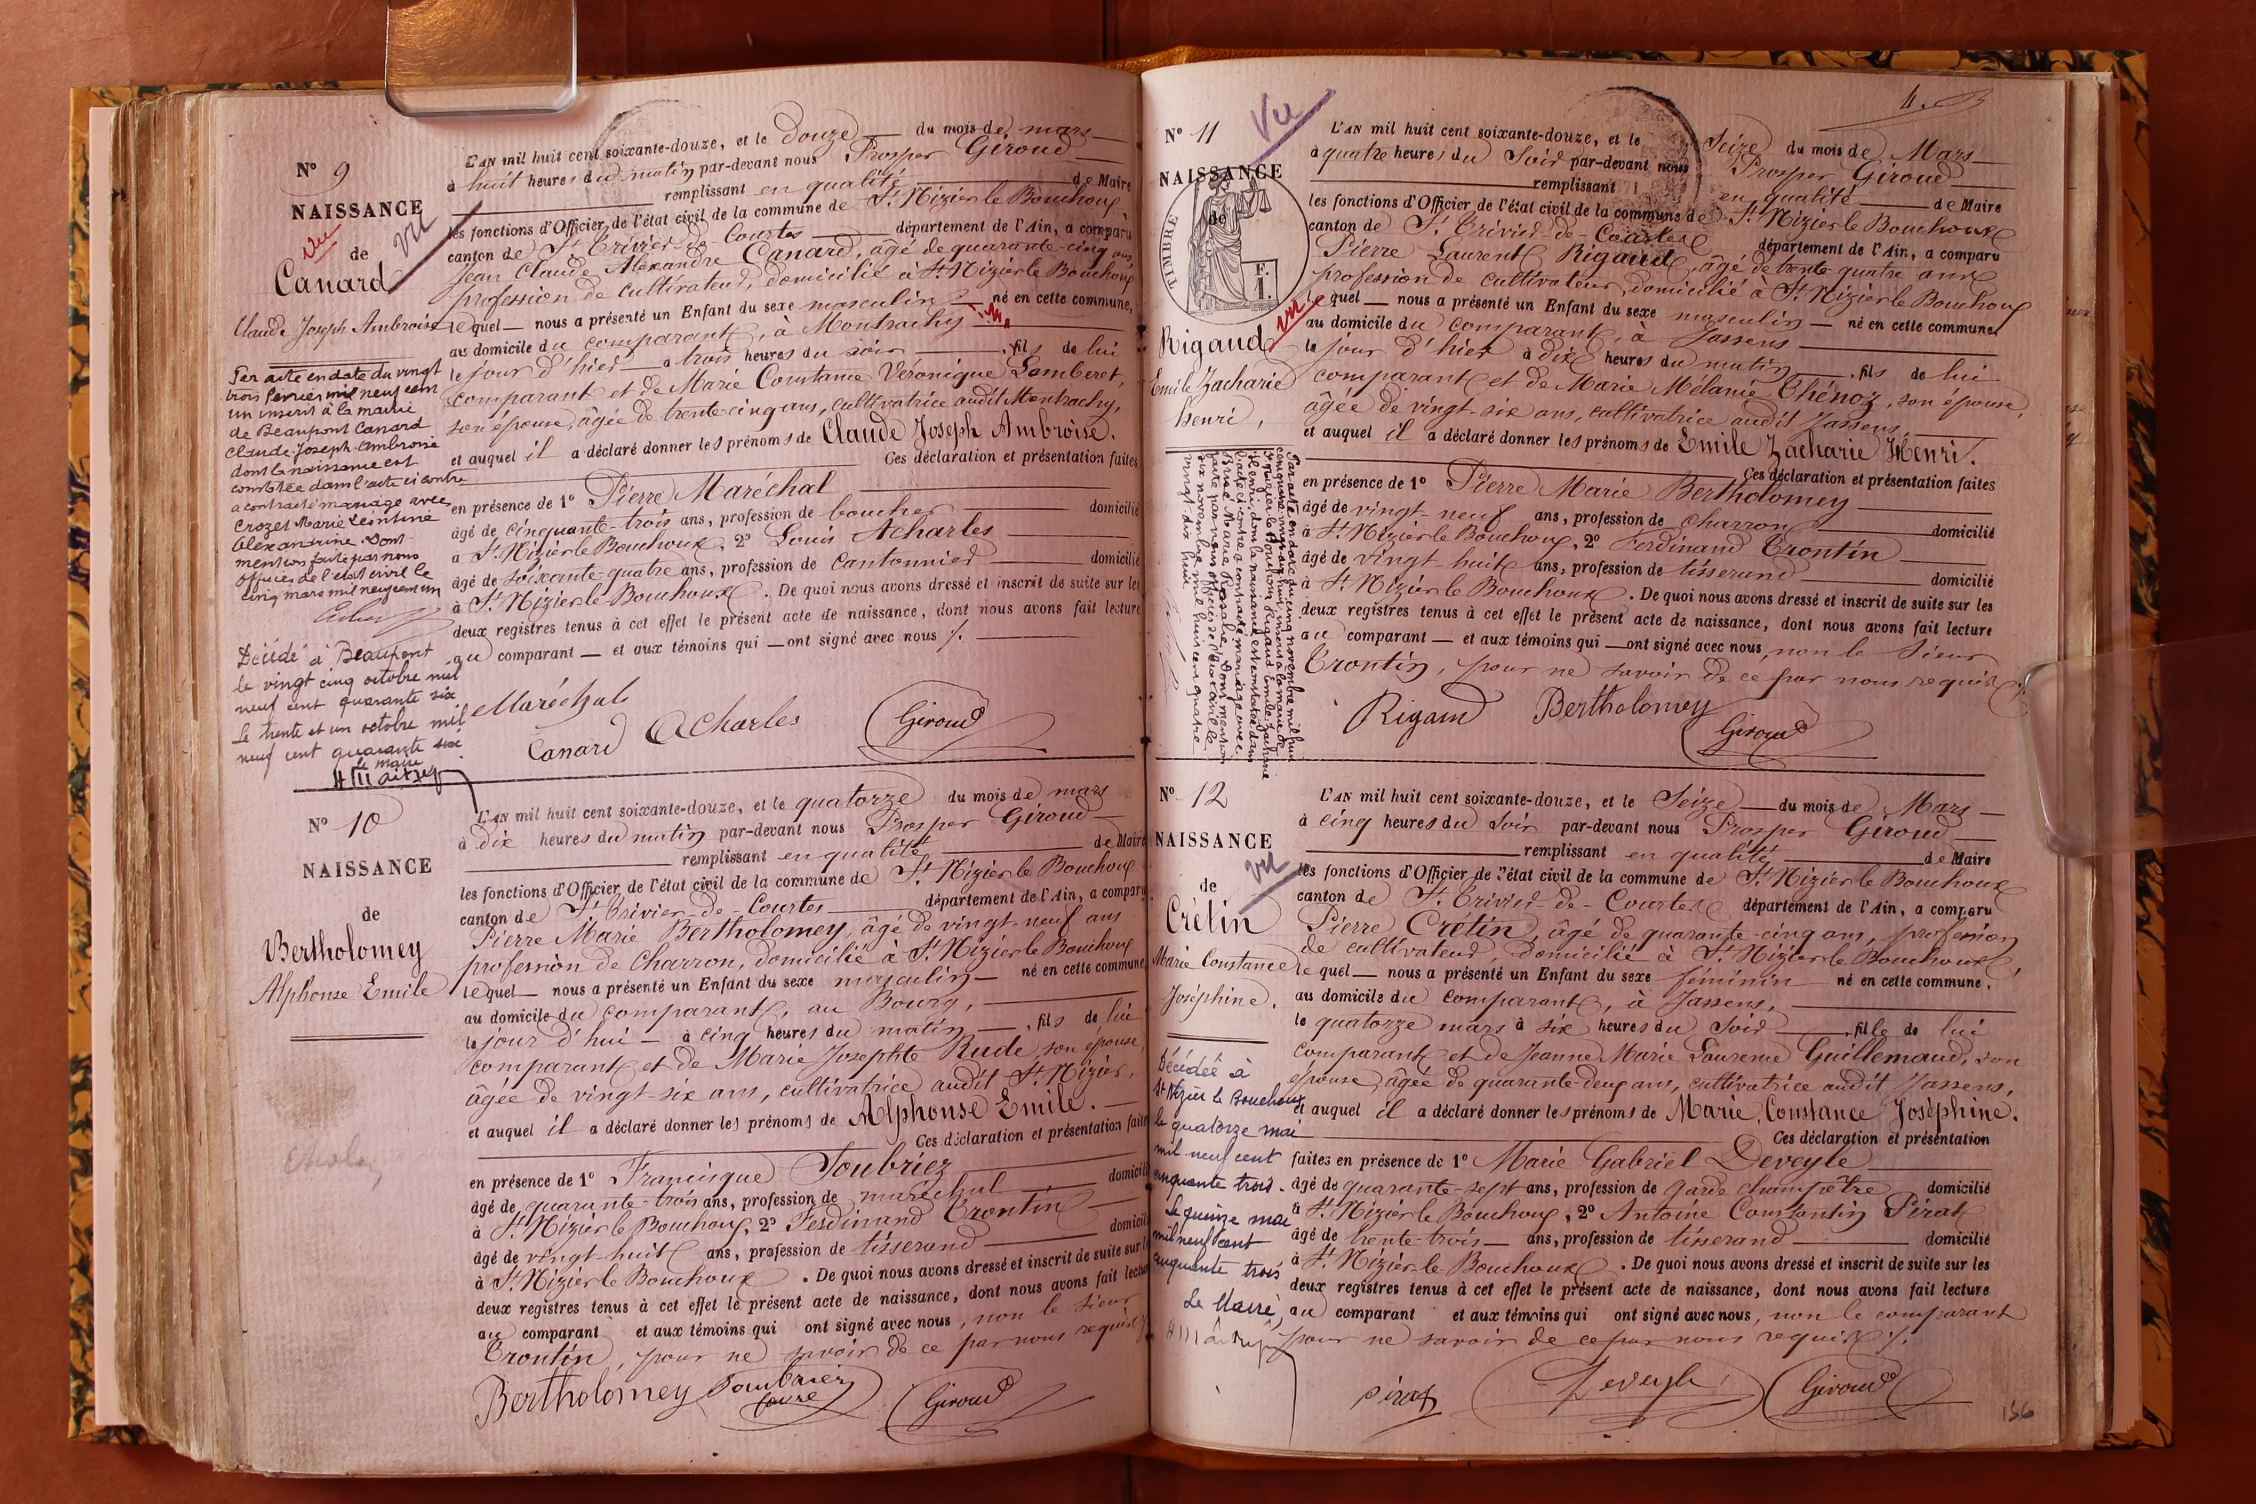 N° 9
NAISSANCE
vu
vu
de
Canard
Claude Joseph Ambroise
Par acte en date du vingt
trois janvier mil neuf cent
un inscrit à la mairie
de Beaupont Canard
Claude Joseph Ambroise
dont la naissance est
constatée dans l'acte ci contre
a contracté mariage avec
Crozet Marie Léontine
Alexandrine. Dont
mention faite par nous
officier de l'état civil le
cinq mars mil neuf cent un
Décédé à Beaupont
le vingt cinq octobre mil
neuf cent quarante six
Le trente et un octobre mil
neuf cent quarante six
le maire
L'AN mil huit cent soixante-douze, et le douze du mois de mars
à huit heures du matin par-devant nous Prosper Giroud
remplissant en qualité de Maire
les fonctions d'Officier de l'état civil de la commune de St Nizier le Bouchoux
canton de St Trivier-de-Courtes département de l'Ain, a comparu
Jean Claude Alexandre Canard, âgé de quarante-cinq ans,
profession de cultivateur, domicilié à St Nizier le Bouchoux
lequel nous a présenté un Enfant du sexe masculin né en cette commune,
au domicile du comparant, à Montrachy
le jour d'hier à trois heures du soir, fils de lui
comparant et de Marie Constance Véronique Lamberet,
son épouse, âgée de trente cinq ans, cultivatrice audit Montrachy,
et auquel il a déclaré donner les prénoms de Claude Joseph Ambroise.
Ces déclaration et présentation faites
en présence de 1° Pierre Maréchal
âgé de cinquante-trois ans, profession de boucher domicilié
à St Nizier le Bouchoux, 2° Louis Acharles
âgé de soixante-quatre ans, profession de cantonnier domicilié
à St Nizier le Bouchoux. De quoi nous avons dressé et inscrit de suite sur les
deux registres tenus à cet effet le présent acte de naissance, dont nous avons fait lecture
au comparant et aux témoins qui ont signé avec nous /.
Maréchal
Canard Acharles Giroud
N° 10
NAISSANCE
de
Bertholomey
Alphonse Emile
L'AN mil huit cent soixante-douze, et le quatorze du mois de mars
à dix heures du matin par-devant nous Prosper Giroud
remplissant en qualité de Maire
les fonctions d'Officier de l'état civil de la commune de St Nizier le Bouchoux
canton de St Trivier-de-Courtes département de l'Ain, a comparu
Pierre Marie Bertholomey, âgé de vingt-neuf ans
profession de Charron, domicilié à St Nizier le Bouchoux
lequel nous a présenté un Enfant du sexe masculin né en cette commune
au domicile du comparant, au Bourg,
le jour d'hui à cinq heures du matin, fils de lui
comparant et de Marie Josephte Rude son épouse,
âgée de vingt-six ans, cultivatrice audit St Nizier,
et auquel il a déclaré donner les prénoms de Alphonse Emile.
Ces déclaration et présentation faites
en présence de 1° Francisque Soubriez
âgé de quarante-trois ans, profession de maréchal domicilié
à St Nizier le Bouchoux, 2° Ferdinand Trontin
âgé de vingt-huit ans, profession de tisserand domicilié
à St Nizier le Bouchoux. De quoi nous avons dressé et inscrit de suite sur les
deux registres tenus à cet effet le présent acte de naissance, dont nous avons fait lecture
au comparant et aux témoins qui ont signé avec nous, non le sieur
Trontin, pour ne savoir de ce par nous requis /.
Bertholomey Soubriez Giroud
N° 11
Vu
NAISSANCE
de
TIMBRE
F.
1.
vu
Rigaud
Emile Zacharie
Henri,
Par acte en date du cinq novembre mil huit
cent quatre vingt dix huit, inscrit à la mairie de
St Nizier le Bouchoux, Rigaud Emile Zacharie
Henri, dont la naissance est constatée dans
l'acte ci-contre a contracté mariage avec
Brus Marie Rosalie. Dont mention
faite par nous officier de l'état civil le
six novembre mil huit cent quatre
vingt dix huit
L'AN mil huit cent soixante-douze, et le Seize du mois de Mars
à quatre heures du Soir par-devant nous Prosper Giroud
remplissant en qualité de Maire
les fonctions d'Officier de l'état civil de la commune de St Nizier le Bouchoux
canton de St Trivier-de-Courtes département de l'Ain, a comparu
Pierre Laurent Rigaud, âgé de trente quatre ans
profession de cultivateur, domicilié à St Nizier le Bouchoux
lequel nous a présenté un Enfant du sexe masculin né en cette commune
au domicile du comparant, à Jassens
le jour d'hier à dix heures du matin, fils de lui
comparant et de Marie Mélanie Thénoz, son épouse,
âgée de vingt-six ans, cultivatrice audit Jassens,
et auquel il a déclaré donner les prénoms de Emile Zacharie Henri.
Ces déclaration et présentation faites
en présence de 1° Pierre Marie Bertholomey
âgé de vingt neuf ans, profession de charron domicilié
à St Nizier le Bouchoux, 2° Ferdinand Trontin
âgé de vingt huit ans, profession de tisserand domicilié
à St Nizier le Bouchoux. De quoi nous avons dressé et inscrit de suite sur les
deux registres tenus à cet effet le présent acte de naissance, dont nous avons fait lecture
au comparant et aux témoins qui ont signé avec nous, non le Sieur
Trontin, pour ne savoir de ce par nous requis /.
Rigaud Bertholomey Giroud
N° 12
NAISSANCE
vu
de
Crétin
Marie Constance
Joséphine.
Décédée à
St Nizier le Bouchoux
le quatorze mai
mil neuf cent
cinquante trois.
Le quinze mai
mil neuf cent
cinquante trois
Le Maire,
L'AN mil huit cent soixante-douze, et le Seize du mois de Mars
à cinq heures du Soir par-devant nous Prosper Giroud
remplissant en qualité de Maire
les fonctions d'Officier de l'état civil de la commune de St Nizier le Bouchoux
canton de St Trivier-de-Courtes département de l'Ain, a comparu
Pierre Crétin, âgé de quarante-cinq ans, profession
de cultivateur, domicilié à St Nizier le Bouchoux,
lequel nous a présenté un Enfant du sexe féminin né en cette commune,
au domicile du comparant, à Jassens,
le quatorze mars à six heures du Soir, fille de lui
comparant et de Jeanne Marie Laurence Guillemaud, son
épouse, âgée de quarante-deux ans, cultivatrice audit Jassens,
et auquel il a déclaré donner les prénoms de Marie Constance Joséphine.
Ces déclaration et présentation
faites en présence de 1° Marie Gabriel Deveyle
âgé de quarante-sept ans, profession de garde champêtre domicilié
à St Nizier le Bouchoux, 2° Antoine Constantin Pirat
âgé de trente-trois ans, profession de tisserand domicilié
à St Nizier le Bouchoux. De quoi nous avons dressé et inscrit de suite sur les
deux registres tenus à cet effet le présent acte de naissance, dont nous avons fait lecture
au comparant et aux témoins qui ont signé avec nous, non le comparant
pour ne savoir de ce par nous requis /.
Pirat Deveyle Giroud
156